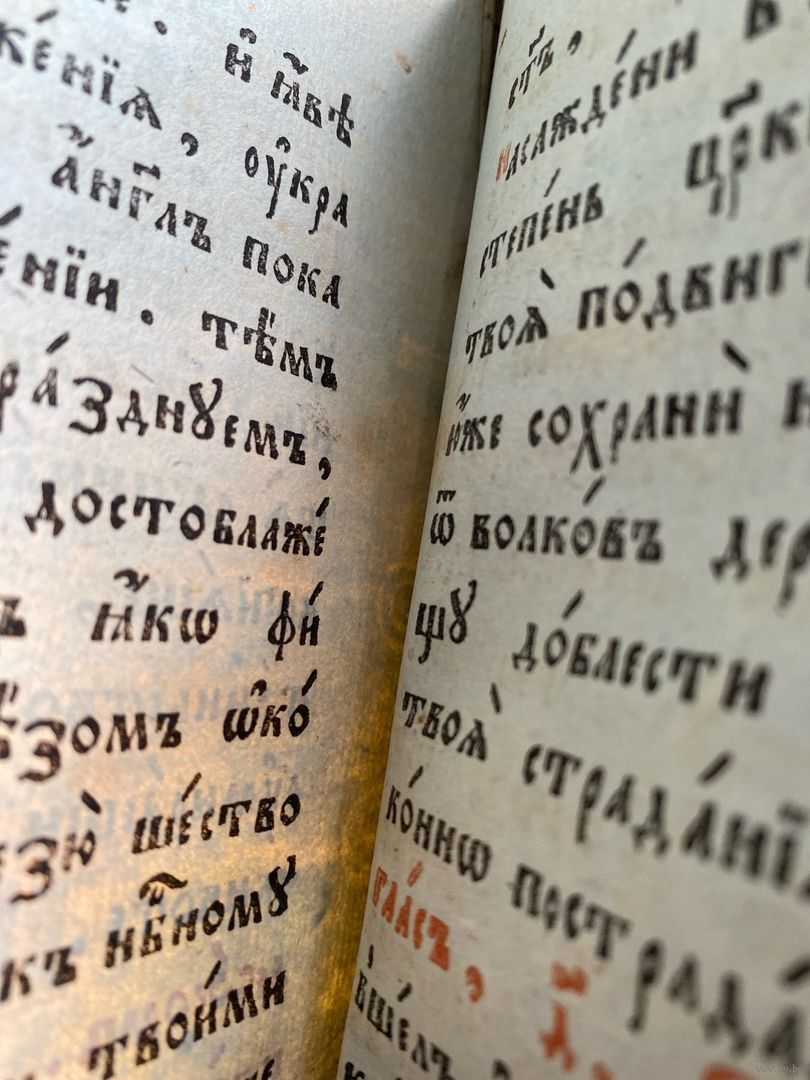 и҆ ꙗ҆́вѣ
же́нїѧ, оу҆кра
а҆́нг҃лъ пока
е́нїи. тѣ́мъ
ра́зднꙋемъ,
достоблаже́
ъ ꙗ҆́кѡ фи́
ѣ́зомъ ѡ҆ко́
езю̀ ше́ство
къ нб҃ному
твои́ми
стъ,
насажде́нн в
степе́нь црк
твоѧ̀ по́двиг
ю҆́же сохранѝ н
ѿ волко́въ дер
щꙋ до́блести
твоѧ̀ страда́нї
ко́ннѡ пострада́
гла́съ, д҃
вше́лъ